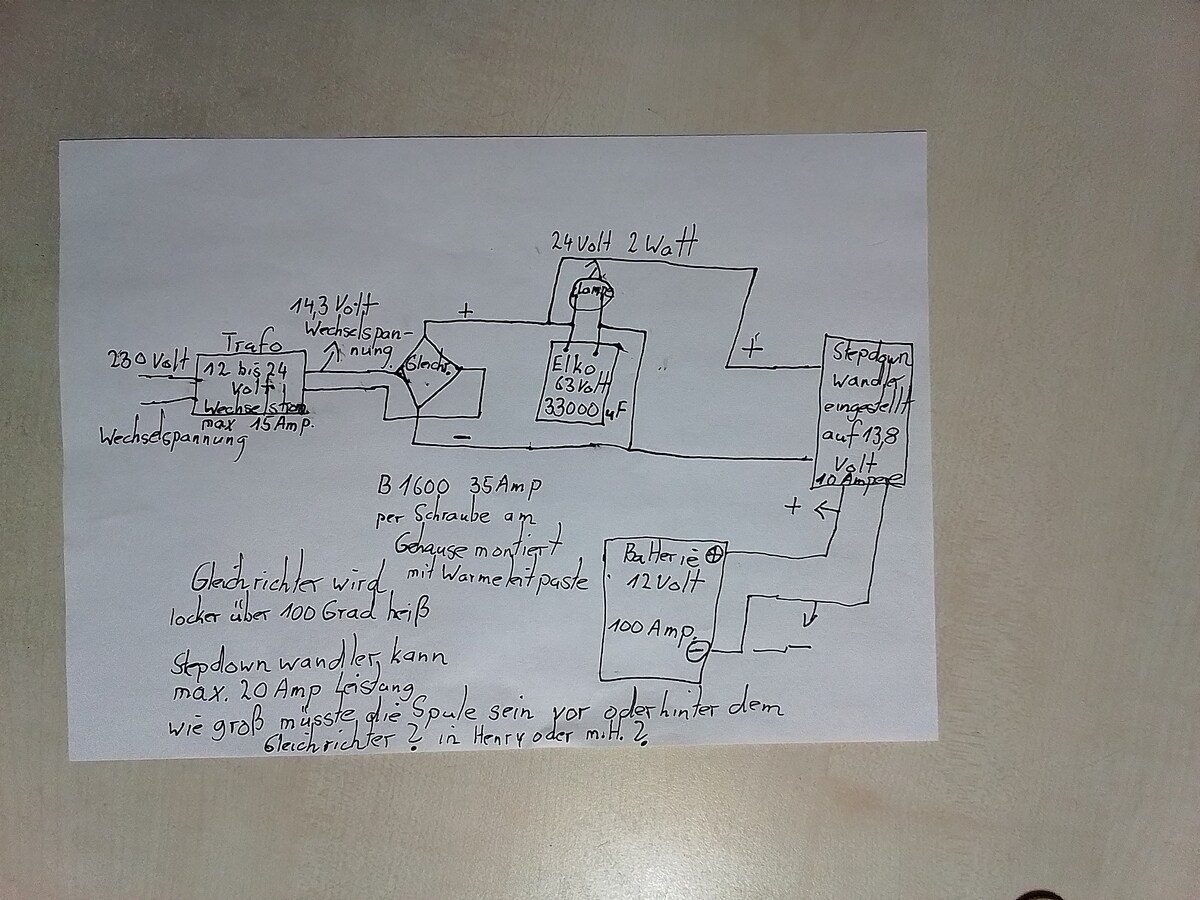 24 Volt 2 Watt
Lampe
14,3 Volt
Wechselspan-
nung
+
Trafo
230 Volt
12 bis 24
Volt
Wechselstrom
max 15 Amp.
Wechselspannung
Gleichr.
-
Elko
63 Volt
33000 uF
+
Stepdown
wandler
eingestellt
auf 13,8
Volt
10 Ampere
B 1600 35 Amp
per Schraube am
Gehäuse montiert
mit Warmeleitpaste
Gleichrichter wird
locker über 100 Grad heiß
+
Batterie +
12 Volt
100 Amp.
-
-
Stepdown wandler kann
max. 20 Amp Leistung
wie groß müsste die Spule sein vor oder hinter dem
Gleichrichter ? in Henry oder m.H. ?